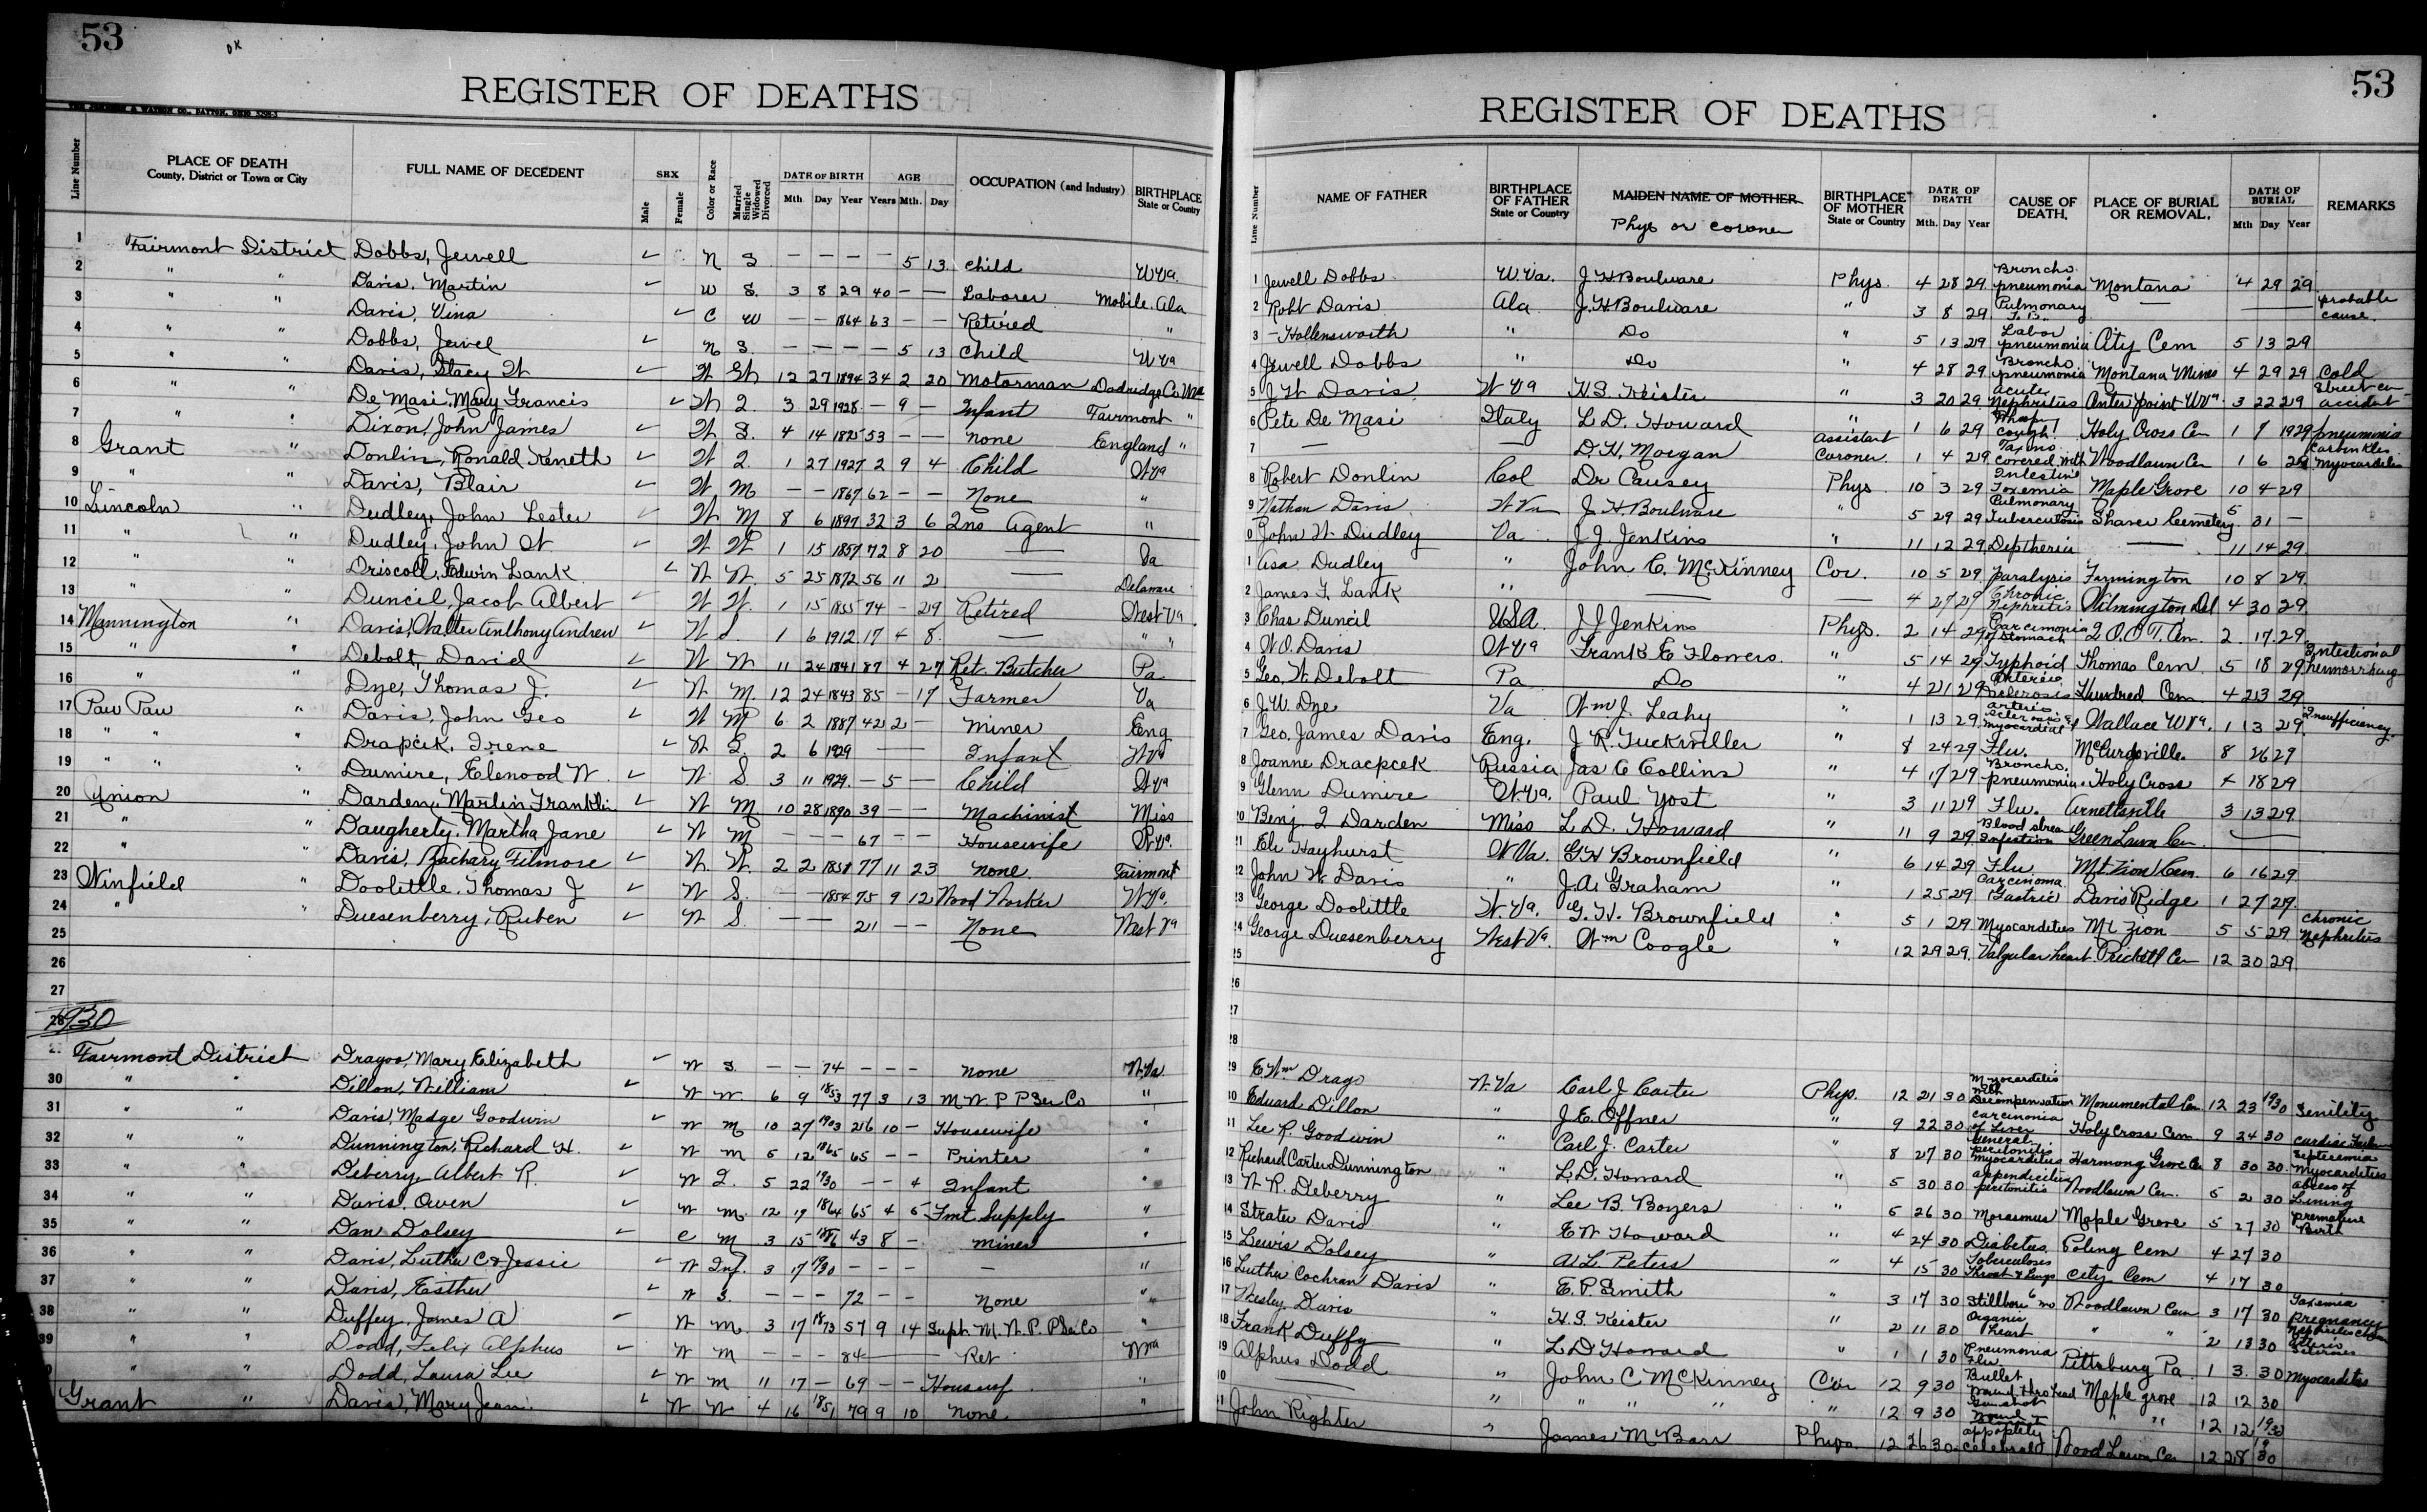 53
REGISTER OF DEATHS
Line Number
PLACE OF DEATH
County, District or Town or City
FULL NAME OF DECEDENT
SEX
Male
Female
Color or Race
Married Single Widowed Divorced
DATE OF BIRTH
Mth Day Year
AGE
Years Mth. Day
OCCUPATION (and Industry)
BIRTHPLACE
State or Country
1 Fairmont District Dobbs, Jewell ✓ N S — — — — 5 13 child W Va.
2 " " Davis, Martin ✓ W S. 3 8 29 40 — — Laborer Mobile. Ala
3 " " Davis, Vina ✓ C W — — 1864 63 — — Retired "
4 " " Dobbs, Jewel ✓ N S. — — — — 5 13 child W Va
5 " " Davis, Stacy W ✓ W W 12 27 1894 34 2 20 Motorman Dodridge Co WVa
6 " " De Masi, Mary Francis ✓ W S. 3 29 1928 — 9 — Infant Fairmont "
7 " " Dixon, John James ✓ W S. 4 14 1875 53 — — none England "
8 Grant " Donlin, Ronald Keneth ✓ W S. 1 27 1927 2 9 4 Child W Va
9 " " Davis, Blair ✓ W M — — 1867 62 — — None "
10 Lincoln " Dudley, John Lester ✓ W M 8 6 1897 32 3 6 Ins Agent "
11 " " Dudley, John W. ✓ W W 1 15 1857 72 8 20 — Va
12 " " Driscoll, Edwin Lank ✓ W W. 5 25 1872 56 11 2 — Delaware
13 " " Duncil, Jacob Albert ✓ W W. 1 15 1855 74 — 29 Retired West Va
14 Mannington " Davis, Walter Anthony Andrew ✓ W S. 1 6 1912 17 4 8. — " "
15 " " Debolt, David ✓ W W 11 24 1841 87 4 27 Ret. Butcher Pa
16 " " Dye, Thomas J. ✓ W. M. 12 24 1843 85 — 17 Farmer Va
17 Paw Paw " Davis, John Geo ✓ W M 6 2 1887 42 2 — Miner Eng
18 " " " Drapcik, Irene ✓ W S. 2 6 1929 — — Infant W Va
19 " " " Dumire, Elenood W. ✓ W S. 3 11 1929 — 5 — Child W Va
20 Union " Darden, Martin Franklin ✓ W M 10 28 1890 39 — — Machinist Miss
21 " " Daugherty, Martha Jane ✓ W M — — — 67 — — Housewife W Va.
22 " " Davis, Zachary Filmore ✓ W. W. 2 2 1851 77 11 23 none Fairmont
23 Winfield " Doolittle, Thomas J ✓ W S. — — 1854 75 9 12 Wood Worker W Va.
24 " " Duesenberry, Ruben ✓ W S. — — 21 — — None West Va
25
26
27
28 1930
Fairmont District Dragoo, Mary Elizabeth ✓ W S. — — 74 — — — none W. Va
30 " " Dillon, William ✓ W W. 6 9 1853 77 3 13 M W. P P Ser Co "
31 " " Davis, Madge Goodwin ✓ W M 10 27 1903 26 10 — Housewife "
32 " " Dunnington, Richard H. ✓ W M 5 12 1865 65 — — Printer "
33 " " Deberry, Albert R. ✓ W S. 5 22 1930 — — 4 Infant "
34 " " Davis, Owen ✓ W M. 12 19 1864 65 4 5 Fmt Supply "
35 " " Dan Dolsey ✓ C M 3 15 1886 43 8 — Miner "
36 " " Davis, Luther C & Jessie ✓ W Inf. 3 17 1930 — — — — "
37 " " Davis, Esther ✓ W S. — — — 72 — — None "
38 " " Duffey, James A ✓ W M. 3 17 1873 57 9 14 Supt. M. W. P. P Ser Co
39 " " Dodd, Felix Alphus ✓ W M — — — 84 — Ret W Va
" " Dodd, Laura Lee ✓ W M 11 17 — 69 — — Housewf "
Grant " Davis, Mary Jean ✓ W W 4 16 1851 79 9 10 none "
53
REGISTER OF DEATHS
Line Number
NAME OF FATHER
BIRTHPLACE OF FATHER
State or Country
MAIDEN NAME OF MOTHER
Phys or coroner
BIRTHPLACE OF MOTHER
State or Country
DATE OF DEATH
Mth. Day Year
CAUSE OF DEATH.
PLACE OF BURIAL OR REMOVAL.
DATE OF BURIAL
Mth Day Year
REMARKS
1 Jewell Dobbs W. Va. J H Boulware Phys. 4 28 29 Broncho pneumonia Montana 4 29 29
2 Robt Davis Ala J. H. Boulware " 3 8 29 Pulmonary T. B. — — probable cause.
3 — Hollensworth " Do " 5 13 29 Lobar pneumonia City Cem 5 13 29
4 Jewell Dobbs " Do " 4 28 29 Broncho pneumonia Montana Mines 4 29 29 Cold
5 J W Davis W Va H. S. Keister " 3 20 29 acute Nephritis Center point W Va. 3 22 29 Street car accident
6 Pete De Masi Italy L. D. Howard " 1 6 29 Whoop cough Holy Cross Cem 1 7 1929 pneumonia
7 — — D. H. Morgan assistant Coroner. 1 4 29 Woodlawn Cem 1 6 29 Carbunkles Myocarditis
8 Robert Donlin Col Dr Causey Phys. 10 3 29 Intestinl Toxemia Maple Grove 10 4 29
9 Nathan Davis W Va J. H. Boulware " 5 29 29 Pulmonary Tuberculosis Shaver Cemetery 5 31 —
John W Dudley Va J. J. Jenkins " 11 12 29 Diptheria — 11 14 29
1 Asa Dudley " John C. McKinney Cor. 10 5 29 paralysis Farmington 10 8 29
2 James T. Lank " — — 4 27 29 Chronic Nephritis Wilmington Del 4 30 29
3 Chas Duncil USA. J J Jenkins Phys. 2 14 29 Carcimonia of Stomach I. O. O. F. Cem. 2 17 29
4 W. O. Davis W Va Frank E Flowers. " 5 14 29 Typhoid Thomas Cem 5 18 29 Intestional hemorrhage
5 Geo. W Debolt Pa Do " 4 21 29 Arterio Sclerosis Hundred Cem 4 23 29
6 J. W. Dye Va Wm J. Leahy " 1 13 29 Arterio Sclerosis & myocardial Wallace W Va. 1 13 29 Insufficiency
7 Geo. James Davis Eng. J R. Tuckwiller " 8 24 29 Flu. McCurdysville. 8 26 29
8 Joanne Dracpcek Russia Jas C Collins " 4 17 29 Broncho, pneumonia. Holy Cross 4 18 29
9 Glenn Dumire W. Va. Paul Yost " 3 11 29 Flu. Arnettsville 3 13 29
20 Benj. I Darden Miss L. D. Howard " 11 9 29 Blood stream Infection Green Lawn Cem —
21 Eli Hayhurst W Va. G H Brownfield " 6 14 29 Flu. Mt Zion Cem. 6 16 29
22 John W. Davis " J. A. Graham " 1 25 29 Carcinoma Gastric Davis Ridge 1 27 29
23 George Doolittle W. Va. G. H. Brownfield " 5 1 29 Myocarditis Mt Zion 5 5 29 Chronic Nephritis
24 George Duesenberry West Va. Wm Coogle " 12 29 29 Valgular heart Prickett Cem 12 30 29
25
26
27
28
29 E. Wm Drago W. Va Carl J Carter Phys. 12 21 30 Myocarditis with Decompensation Monumental Cem 12 23 1930 Senility
30 Eduard Dillon " J. E. Offner " 9 22 30 carcinonia of Liver Holy Cross Cem 9 24 30 cardiac Failure
31 Lee R. Goodwin " Carl J. Carter " 8 27 30 General peritonitis Harmony Grove Ce 8 30 30 Septicemia
32 Richard Carter Dunnington " L. D. Howard " 5 30 30 myocarditis appendicitis peritonitis Woodlawn Cem. 6 2 30 Myocarditis abcess of Lining
33 W. R. Deberry " Lee B. Boyers " 5 26 30 Morasmus Maple Grove 5 27 30 premature Birth
34 Strater Davis " E W Howard " 4 24 30 Diabetes. Poling Cem 4 27 30
35 Lewis Dolsey " A. L. Peters " 4 15 30 Toberculoses Throat & Lungs City Cem 4 17 30
36 Luther Cochran Davis " E. P. Smith " 3 17 30 Stillborn 6 mo Woodlawn Cem 3 17 30 Toxemia pregnancy
37 Wesley Davis " H. S. Keister " 2 11 30 Organic heart " " 2 13 30 Nephritis
38 Frank Duffy " L D Howard " 1 1 30 Pneumonia Flu Pittsburg Pa 1 3 30 Myocarditis
39 Alphus Dodd " John C McKinney Cor 12 9 30 Bullet wound thro head Maple grove 12 12 30
— " " " " " 12 9 30 Gunshot Wound " " 12 12 1930
John Righter " James McBarr Phys. 12 26 30 appoplexy cerebral Wood Lawn Ce 12 28 30